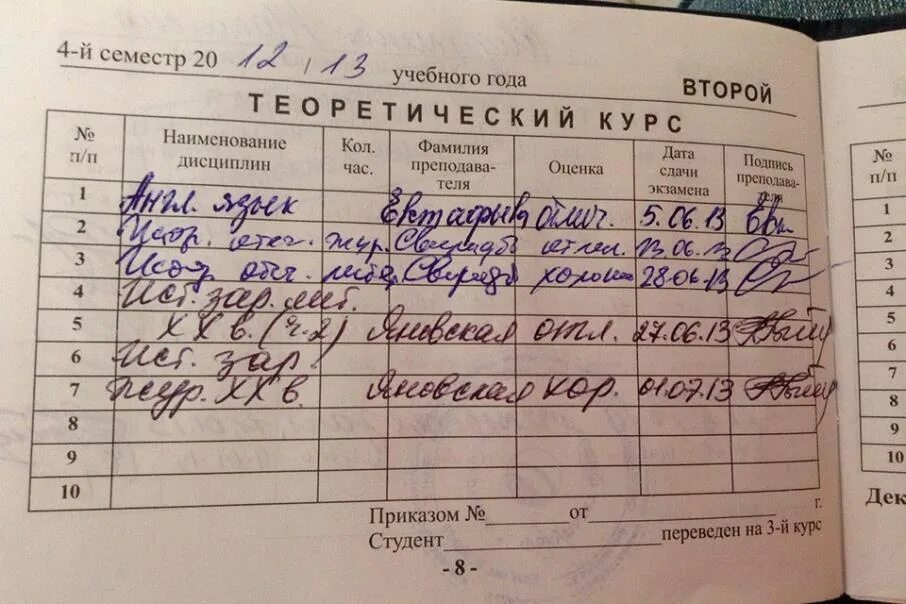 4-й семестр 20 12 / 13 учебного года ВТОРОЙ
ТЕОРЕТИЧЕСКИЙ КУРС
№ п/п Наименование дисциплин Кол. час. Фамилия преподава-теля Оценка Дата сдачи экзамена Подпись преподава-теля
1 Англ. язык отлич. 5.06.13
2 Истор. отеч. жур. отлич. 13.06.13
3 Истор. отеч. хорошо 28.06.13
4 Ист. зар. лит.
5 XX в. (ч.2) Яновская отл. 27.06.13
6 Ист. зар.
7 жур. XX в. Яновская хор. 01.07.13
8
9
10
Приказом № от г.
Студент переведен на 3-й курс
- 8 -
№ п/п
1
2
3
4
5
6
7
8
9
10
Дек